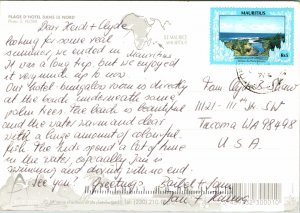 PLAGE D'HOTEL DANS LE NORD
Dear Heidi + Clyde
looking for some real
summer, we ended in Mauritius
It was a long trip, but we enjoyed
it very much up to now.
Our hotel-bungalow room is directly
at the beach underneath some
palm trees. The beach is beautiful
and the water warm and clear
with a huge amount of colourful
fish. The kids spent a lot of time
in the water, especially Jan is
swimming and diving with no end.
See you! Greetings
Jan +
MAURITIUS
Rs5
Fam. Clyde
SW
Tacoma WA 98498
U.S.A.